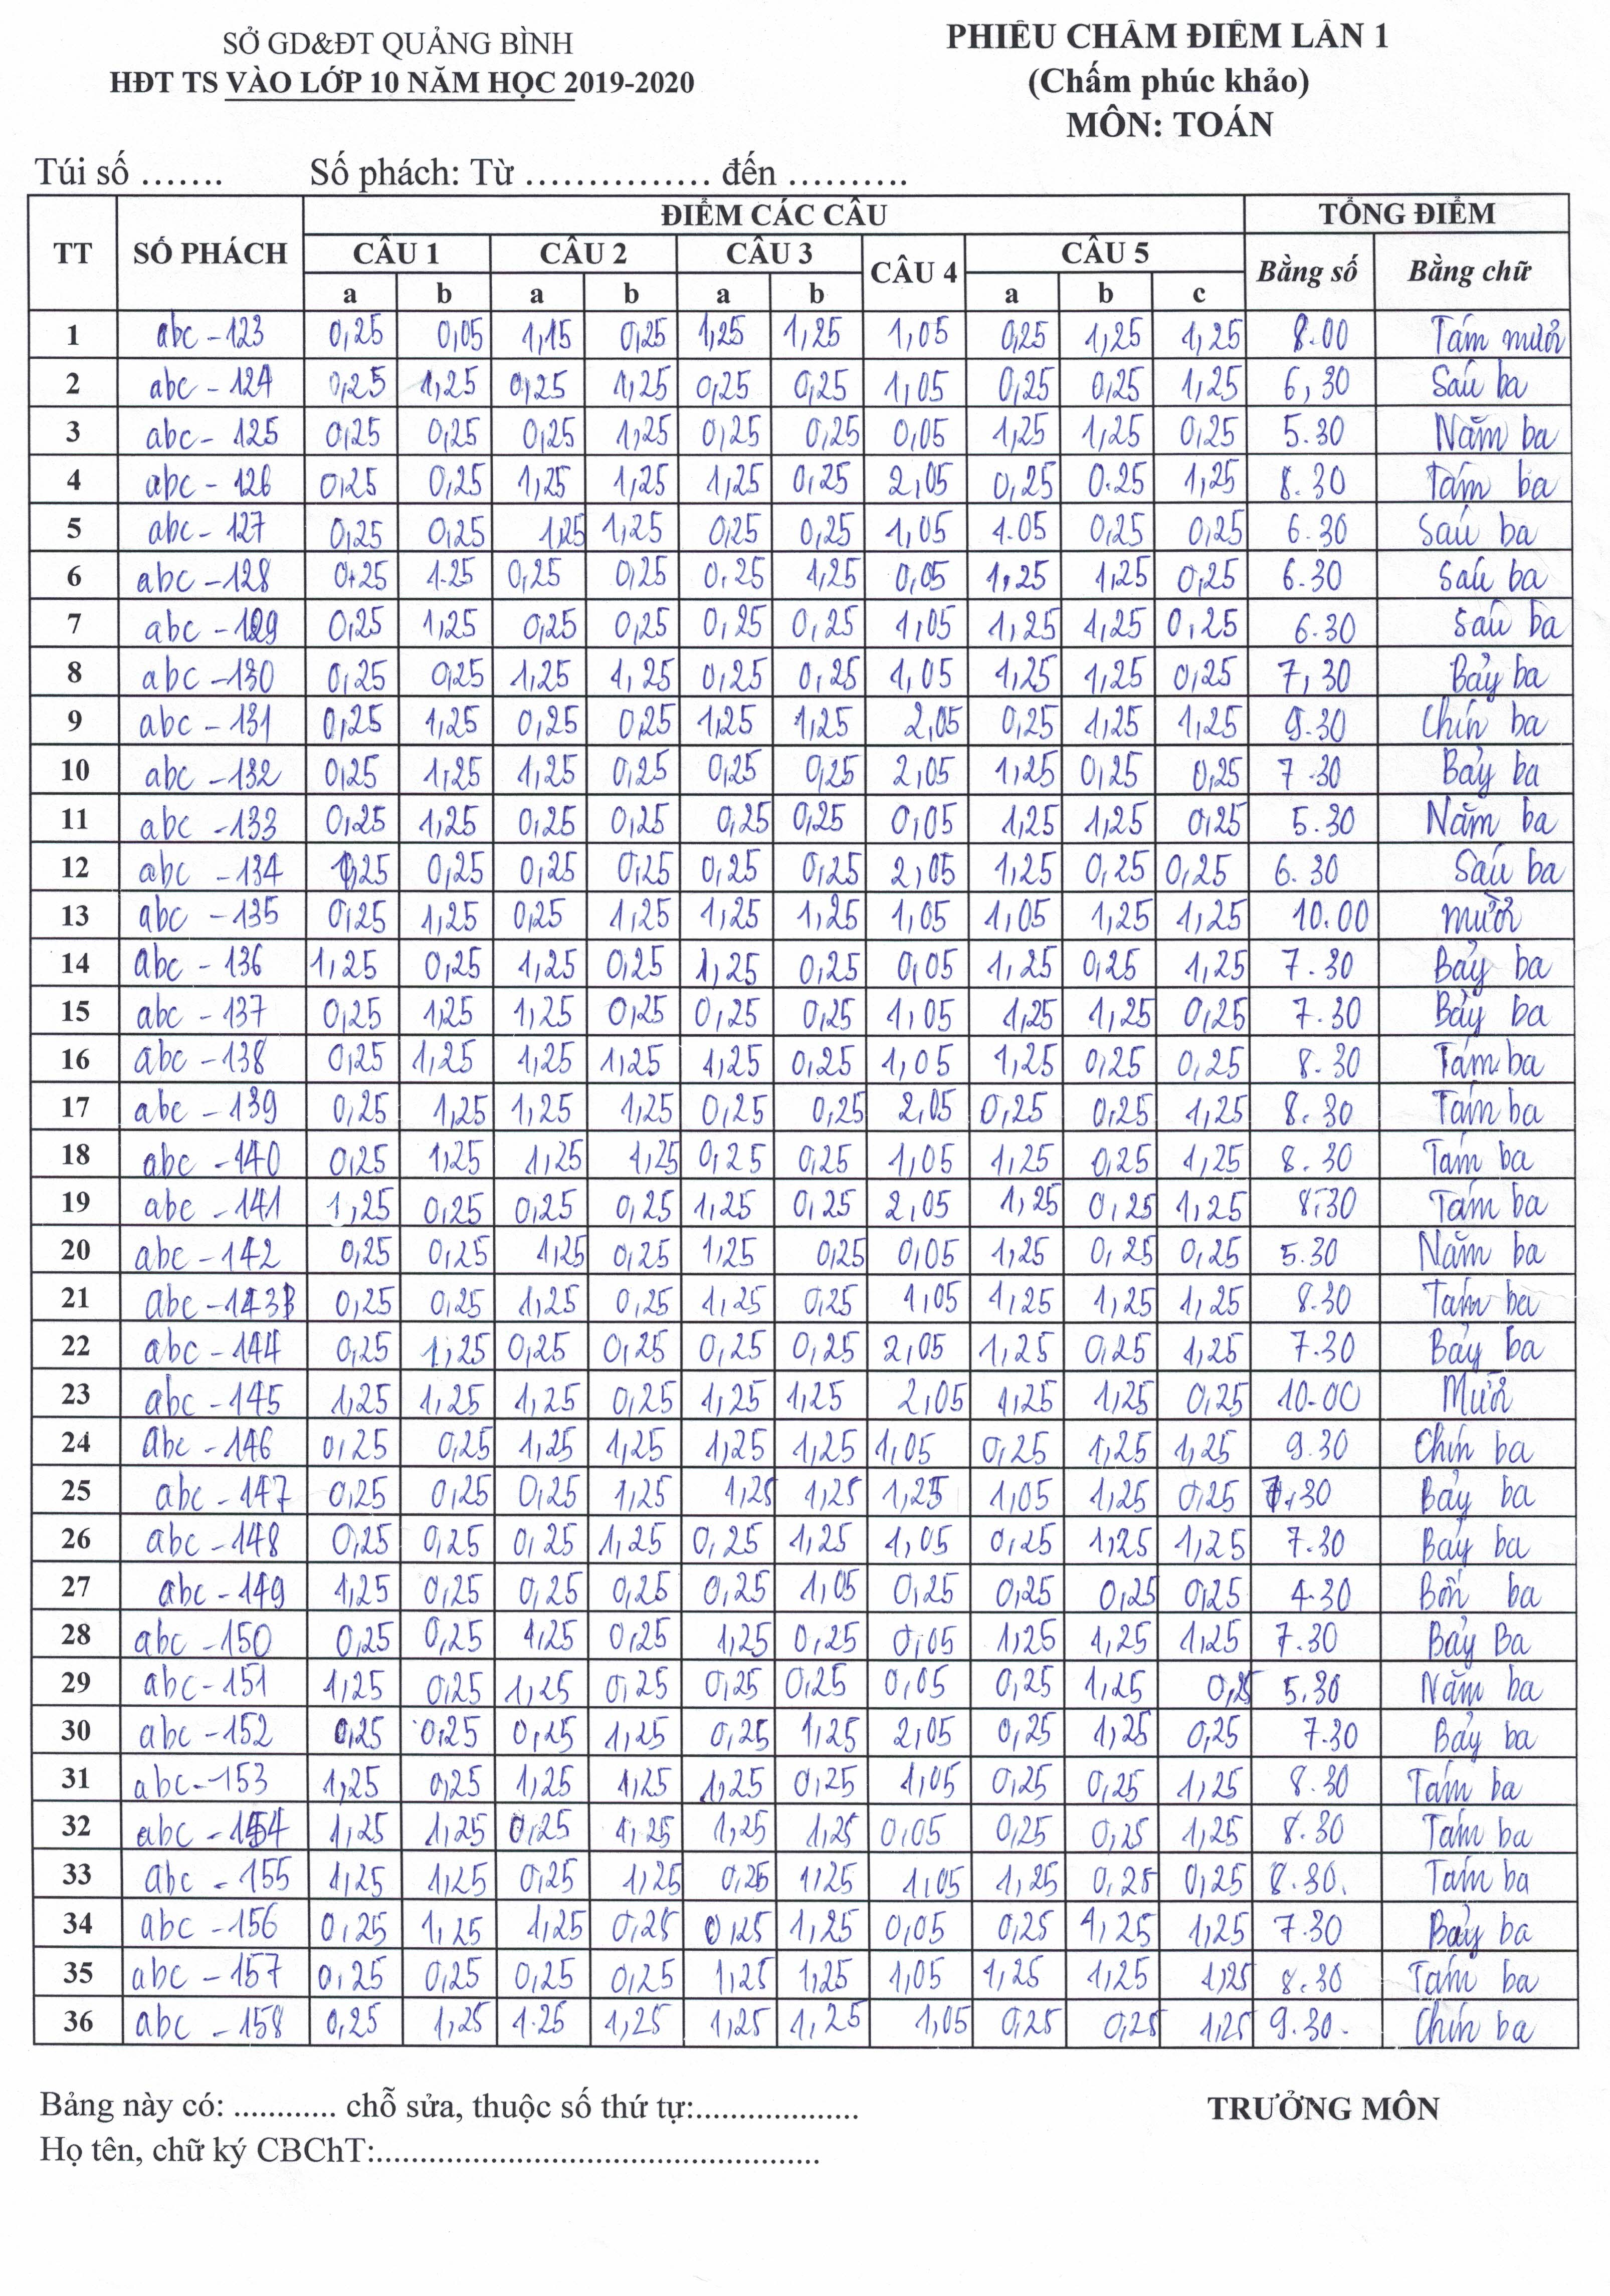 SỞ GD&ĐT QUẢNG BÌNH
HĐT TS VÀO LỚP 10 NĂM HỌC 2019-2020
PHIẾU CHẤM ĐIỂM LẦN 1
(Chấm phúc khảo)
MÔN: TOÁN
Túi số ....... Số phách: Từ ................ đến ..........
TT SỐ PHÁCH ĐIỂM CÁC CÂU TỔNG ĐIỂM
CÂU 1 CÂU 2 CÂU 3 CÂU 4 CÂU 5 Bằng số Bằng chữ
a b a b a b a b c
1 abc - 123 0,25 0,05 1,15 0,25 1,25 1,25 1,05 0,25 1,25 1,25 8.00 Tám mươi
2 abc - 124 0,25 1,25 0,25 1,25 0,25 0,25 1,05 0,25 0,25 1,25 6,30 Sáu ba
3 abc - 125 0,25 0,25 0,25 1,25 0,25 0,25 0,05 1,25 1,25 0,25 5.30 Năm ba
4 abc - 126 0,25 0,25 1,25 1,25 1,25 0,25 2,05 0,25 0.25 1,25 8.30 Tám ba
5 abc - 127 0,25 0,25 1,25 1,25 0,25 0,25 1,05 1.05 0,25 0,25 6.30 Sáu ba
6 abc - 128 0,25 1.25 0,25 0,25 0,25 1,25 0,05 1,25 1,25 0,25 6.30 Sáu ba
7 abc - 129 0,25 1,25 0,25 0,25 0,25 0,25 1,05 1,25 1,25 0,25 6.30 Sáu ba
8 abc - 130 0,25 0,25 1,25 1,25 0,25 0,25 1,05 1,25 1,25 0,25 7,30 Bảy ba
9 abc - 131 0,25 1,25 0,25 0,25 1,25 1,25 2,05 0,25 1,25 1,25 9.30 Chín ba
10 abc - 132 0,25 1,25 1,25 0,25 0,25 0,25 2,05 1,25 0,25 0,25 7.30 Bảy ba
11 abc - 133 0,25 1,25 0,25 0,25 0,25 0,25 0,05 1,25 1,25 0,25 5.30 Năm ba
12 abc - 134 0,25 0,25 0,25 0,25 0,25 2,05 1,25 0,25 0,25 6.30 Sáu ba
13 abc - 135 0,25 1,25 0,25 1,25 1,25 1,25 1,05 1,05 1,25 1,25 10.00 mười
14 abc - 136 1,25 0,25 1,25 0,25 1,25 0,25 0,05 1,25 0,25 1,25 7.30 Bảy ba
15 abc - 137 0,25 1,25 1,25 0,25 0,25 0,25 1,05 1,25 1,25 0,25 7.30 Bảy ba
16 abc - 138 0,25 1,25 1,25 1,25 1,25 0,25 1,05 1,25 0,25 0,25 8.30 Tám ba
17 abc - 139 0,25 1,25 1,25 1,25 0,25 0,25 2,05 0,25 0,25 1,25 8.30 Tám ba
18 abc - 140 0,25 1,25 1,25 1,25 0,25 0,25 1,05 1,25 0,25 1,25 8.30 Tám ba
19 abc - 141 1,25 0,25 0,25 0,25 1,25 0,25 2,05 1,25 0,25 1,25 8,30 Tám ba
20 abc - 142 0,25 0,25 1,25 0,25 1,25 0,25 0,05 1,25 0,25 0,25 5.30 Năm ba
21 0,25 0,25 1,25 0,25 1,25 0,25 1,05 1,25 1,25 1,25 8.30 Tám ba
22 abc - 144 0,25 1,25 0,25 0,25 0,25 0,25 2,05 1,25 0,25 1,25 7.30 Bảy ba
23 abc - 145 1,25 1,25 1,25 0,25 1,25 1,25 2,05 1,25 1,25 0,25 10.00 Mười
24 abc - 146 0,25 0,25 1,25 1,25 1,25 1,25 1,05 0,25 1,25 1,25 9.30 Chín ba
25 abc - 147 0,25 0,25 0,25 1,25 1,25 1,25 1,25 1,05 1,25 0,25 7.30 Bảy ba
26 abc - 148 0,25 0,25 0,25 1,25 0,25 1,25 1,05 0,25 1,25 1,25 7.30 Bảy ba
27 abc - 149 1,25 0,25 0,25 0,25 0,25 1,05 0,25 0,25 0,25 0,25 4.30 Bốn ba
28 abc - 150 0,25 0,25 1,25 0,25 1,25 0,25 0,05 1,25 1,25 1,25 7.30 Bảy Ba
29 abc - 151 1,25 0,25 1,25 0,25 0,25 0,25 0,05 0,25 1,25 0,25 5.30 Năm ba
30 abc - 152 0,25 0,25 0,25 1,25 0,25 1,25 2,05 0,25 1,25 0,25 7.30 Bảy ba
31 abc - 153 1,25 0,25 1,25 1,25 1,25 0,25 1,05 0,25 0,25 1,25 8.30 Tám ba
32 abc - 154 1,25 1,25 0,25 1,25 1,25 1,25 0,05 0,25 0,25 1,25 8.30 Tám ba
33 abc - 155 1,25 1,25 0,25 1,25 0,25 1,25 1,05 1,25 0,25 0,25 8.30. Tám ba
34 abc - 156 0,25 1,25 1,25 0,25 0,25 1,25 0,05 0,25 1,25 1,25 7.30 Bảy ba
35 abc - 157 0,25 0,25 0,25 0,25 1,25 1,25 1,05 1,25 1,25 1,25 8.30 Tám ba
36 abc - 158 0,25 1,25 1.25 1,25 1,25 1,25 1,05 0,25 0,25 1,25 9.30. Chín ba
Bảng này có: ............ chỗ sửa, thuộc số thứ tự:...................
TRƯỞNG MÔN
Họ tên, chữ ký CBChT:..................................................